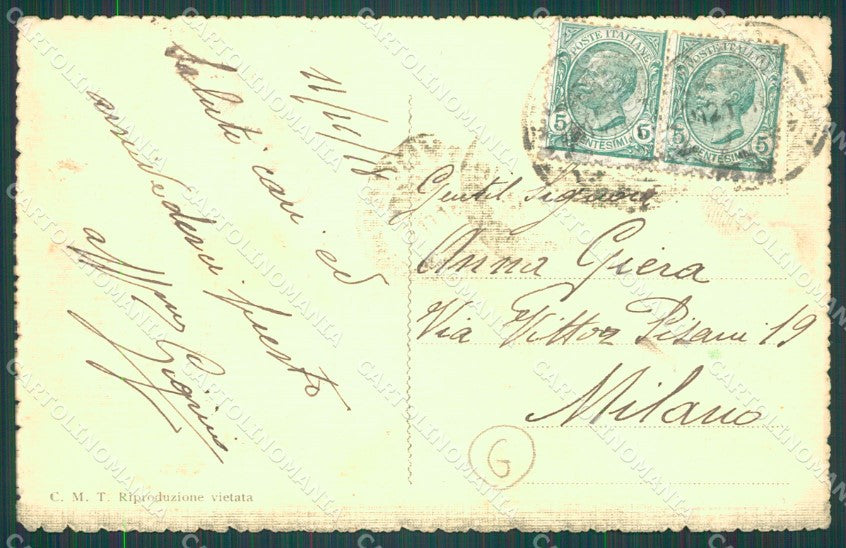 11/11/18
Saluti cari ed
arrivederci presto
aff/mo Gigino
Gentil Signora
Anna Giera
Via Vittor Pisani 19
Milano
G
POSTE ITALIANE
5 CENTESIMI 5
POSTE ITALIANE
5 CENTESIMI 5
C. M. T. Riproduzione vietata
CARTOLINOMANIA